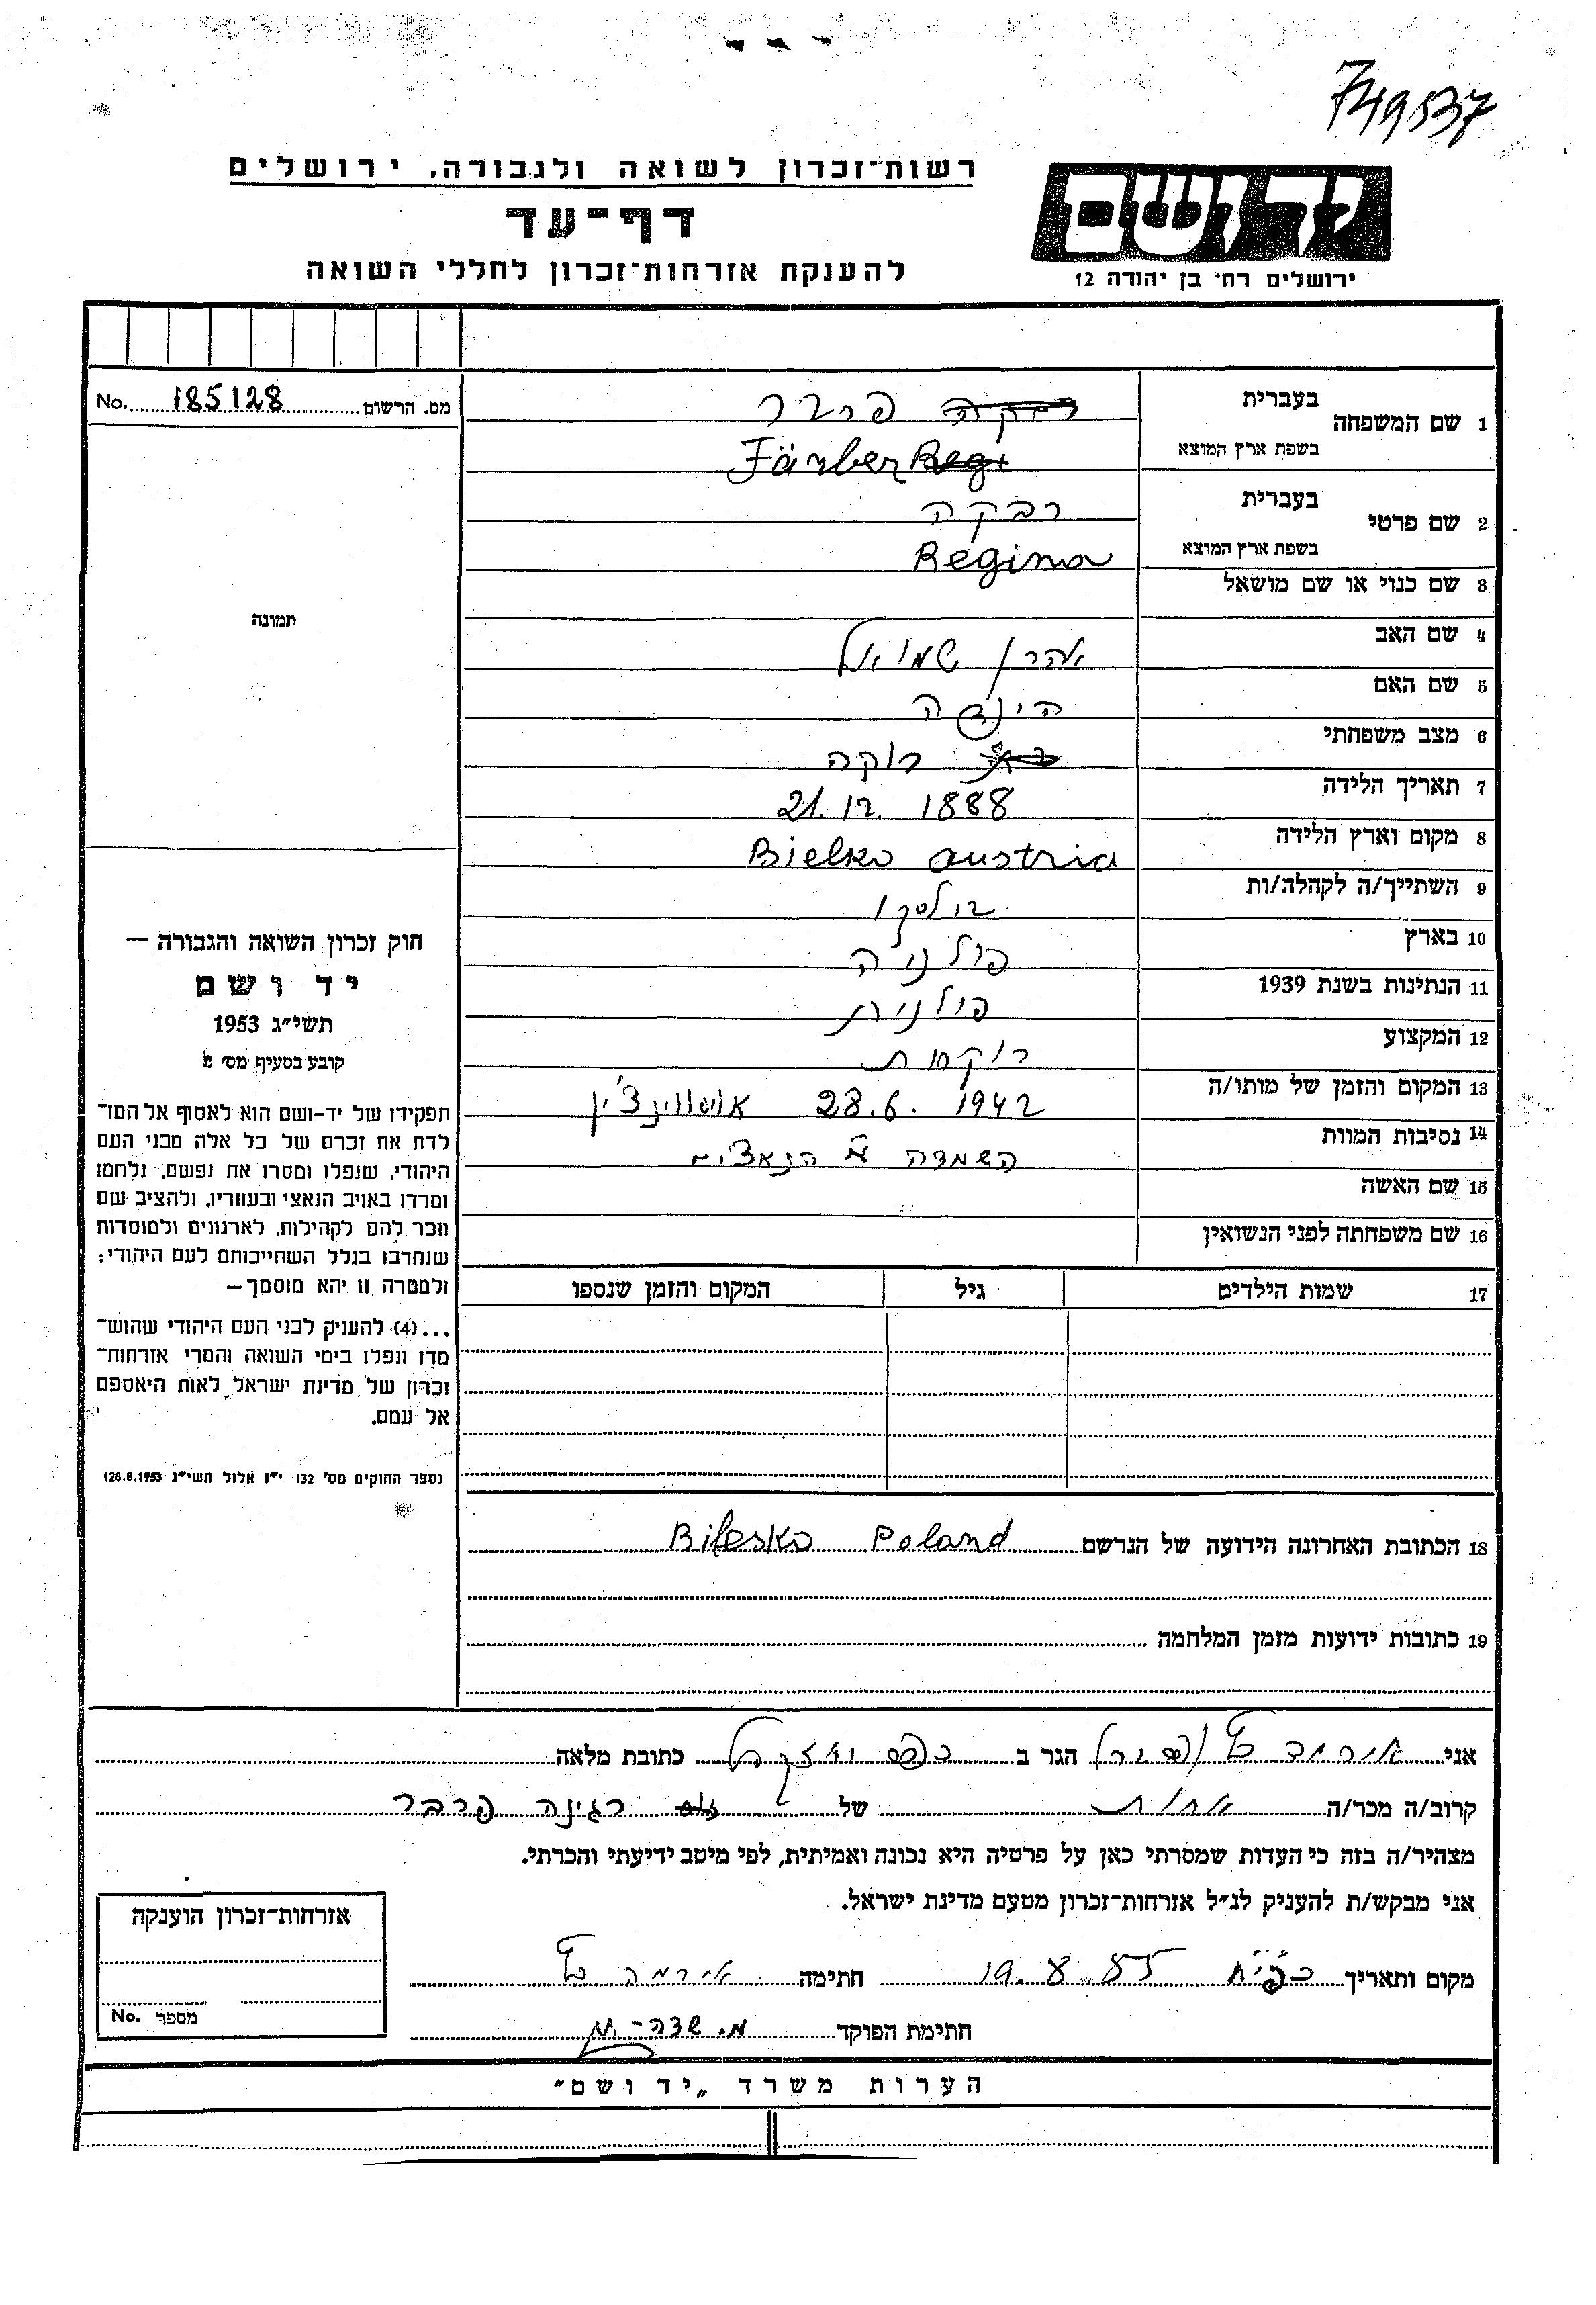 749537
רשות־זכרון לשואה ולגבורה, ירושלים
דף־עד
להענקת אזרחות־זכרון לחללי השואה
יד ושם
ירושלים רח׳ בן יהודה 12
מס. הרשום 185128 No.
1 שם המשפחה בעברית רבקה פרבר
בשפת ארץ המוצא Färber Regi
2 שם פרטי בעברית רבקה
בשפת ארץ המוצא Regina
3 שם כנוי או שם מושאל
4 שם האב אהרן שמואל
5 שם האם הינדה
6 מצב משפחתי רווקה
7 תאריך הלידה 21.12.1888
8 מקום וארץ הלידה Bielsko austria
9 השתייך/ה לקהלה/ות בילסקו
10 בארץ פולניה
11 הנתינות בשנת 1939 פולנית
12 המקצוע רוקחת
13 המקום והזמן של מותו/ה 28.6.1942 אושווינצ׳ין
14 נסיבות המוות השמדה ע״י הנאצים
15 שם האשה
16 שם משפחתה לפני הנשואין
17 שמות הילדים גיל המקום והזמן שנספו
תמונה
חוק זכרון השואה והגבורה —
יד ושם
תשי״ג 1953
קובע בסעיף מס׳ 2
תפקידו של יד-ושם הוא לאסוף אל המו־
לדת את זכרם של כל אלה מבני העם
היהודי, שנפלו ומסרו את נפשם, נלחמו
ומרדו באויב הנאצי ובעוזריו, ולהציב שם
וזכר להם לקהילות, לארגונים ולמוסדות
שנחרבו בגלל השתייכותם לעם היהודי;
ולמטרה זו יהא מוסמך —
...(4) להעניק לבני העם היהודי שהוש־
מדו ונפלו בימי השואה והמרי אזרחות־
זכרון של מדינת ישראל לאות היאספם
אל עמם.
(ספר החוקים מס׳ 132 י״ז אלול תשי״ג 28.8.1953)
18 הכתובת האחרונה הידועה של הנרשם Bilesko Poland
19 כתובות ידועות מזמן המלחמה
אני הגר ב כתובת מלאה
קרוב/ה מכר/ה אחות של רגינה פרבר
מצהיר/ה בזה כי העדות שמסרתי כאן על פרטיה היא נכונה ואמיתית, לפי מיטב ידיעתי והכרתי.
אני מבקש/ת להעניק לנ״ל אזרחות־זכרון מטעם מדינת ישראל.
מקום ותאריך 19.8.55 חתימה אירמה
חתימת הפוקד
אזרחות־זכרון הוענקה
מספר No.
הערות משרד „יד ושם״